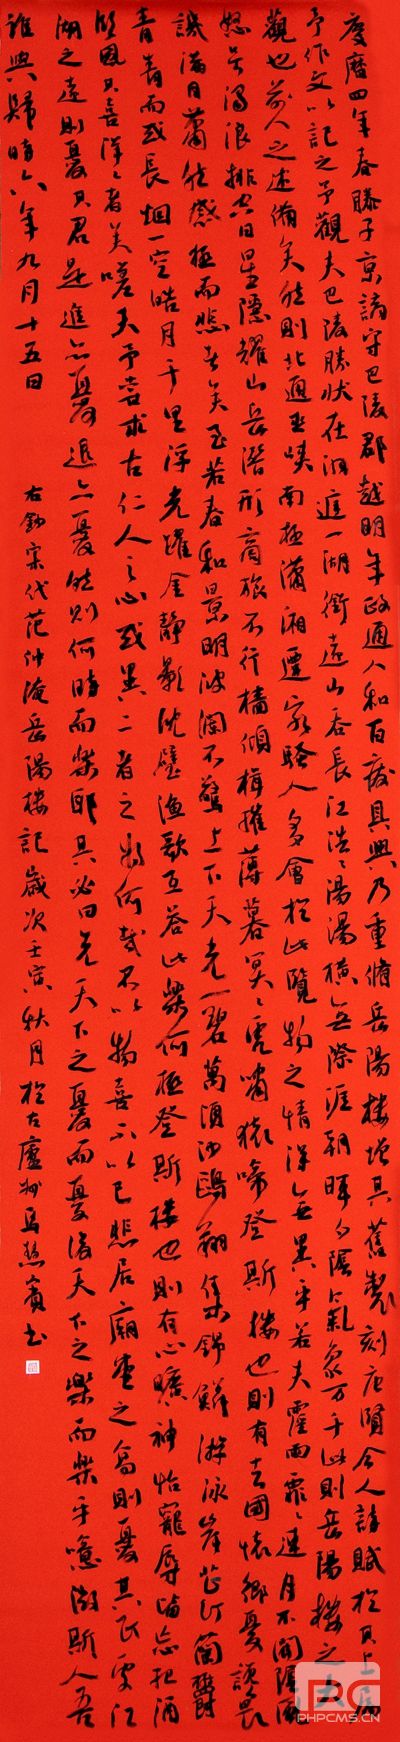 慶曆四年春滕子京謫守巴陵郡越明年政通人和百廢具興乃重脩岳陽樓增其舊製刻唐賢今人詩賦於其上属
予作文以記之予觀夫巴陵勝狀在洞庭一湖銜遠山吞長江浩々湯湯橫無際涯朝暉夕陰氣象万千此則岳陽樓之大
觀也前人之述備矣然則北通巫峽南極瀟湘遷客騷人多會於此覽物之情得無異乎若夫霪雨霏々連月不開陰風
怒号濁浪排空日星隱耀山岳潛形商旅不行檣傾楫摧薄暮冥々虎嘯猿啼登斯樓也則有去國懷鄉憂讒畏
譏滿目蕭然感極而悲者矣至若春和景明波瀾不驚上下天光一碧萬頃沙鷗翔集錦鱗游泳岸芷汀蘭鬱
青青而或長烟一空皓月千里浮光躍金靜影沈璧漁歌互答此樂何極登斯樓也則有心曠神怡寵辱皆忘把酒
臨風其喜洋々者矣嗟夫予嘗求古仁人之心或異二者之為何哉不以物喜不以己悲居廟堂之高則憂其民處江
湖之遠則憂其君是進亦憂退亦憂然則何時而樂耶其必曰先天下之憂而憂後天下之樂而樂乎噫微斯人吾
誰與歸時六年九月十五日
右錄宋代范仲淹岳陽樓記歲次壬寅秋月於古廬州馬賓書
PHPCMS.CN